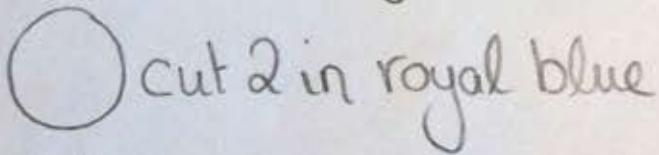 cut 2 in royal blue